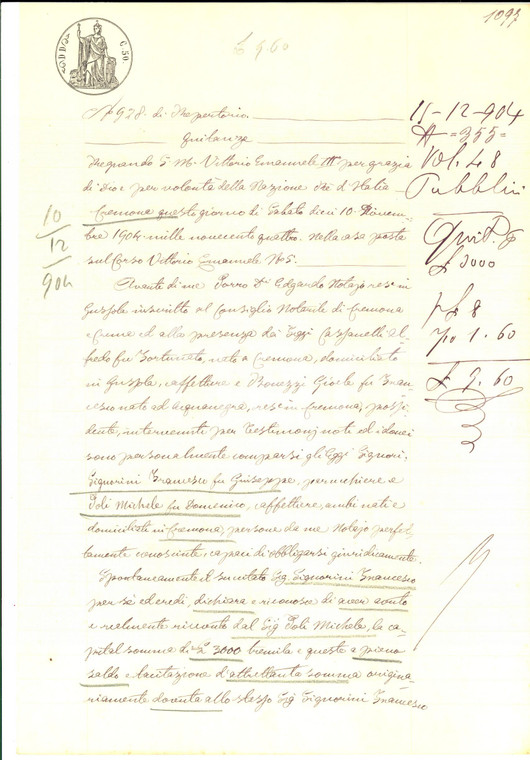 1093
C. 50
£ 9.60
N° 928. di Repertorio
Quitanza
Regnando S. M. Vittorio Emanuele III per grazia
di Dio e per volontà della Nazione Re d'Italia
Cremona questo giorno di Sabato dieci 10
bre 1904 mille novecento quattro. Nella casa posta
sul Corso Vittorio Emanuele N° 5.
Avanti di me Porro Dr Edgardo Notajo resi in
Gussola inscritto al Consiglio Notarile di Cremona
e Crema ed alla presenza dei Siggi Al-
fredo fu Fortunato, nato a Cremona, domiciliato
in Gussola, caffettiere e Bonezzi Gioele fu Fran-
cesco nato ad Acquanegra, resi in Cremona, possi-
dente, intervenuti per testimonj noti ed idonei
sono personalmente comparsi gli Eggi Signori.
Signorini Francesco fu Giuseppe, parrucchiere e
Poli Michele fu Domenico, caffettiere, ambi nati e
domiciliati in Cremona, persone da me Notajo perfet-
tamente conosciute, capaci di obbligarsi giuridicamente.
Spontaneamente il sucitato Sig. Signorini Francesco
per sè ed eredi, dichiara e riconosce di aver avuto
e realmente ricevuto dal Sig Poli Michele, la ca-
pital somma di £ 3000 tremila e questa a pieno
saldo e tacitazione d'altrettanta somma origina-
riamente dovuta allo stesso Sig Signorini Francesco
10
12
904
15-12-904
N =355=
Vol. 48
Pubblici
Quit.
£ 3000
8
1.60
£ 9.60